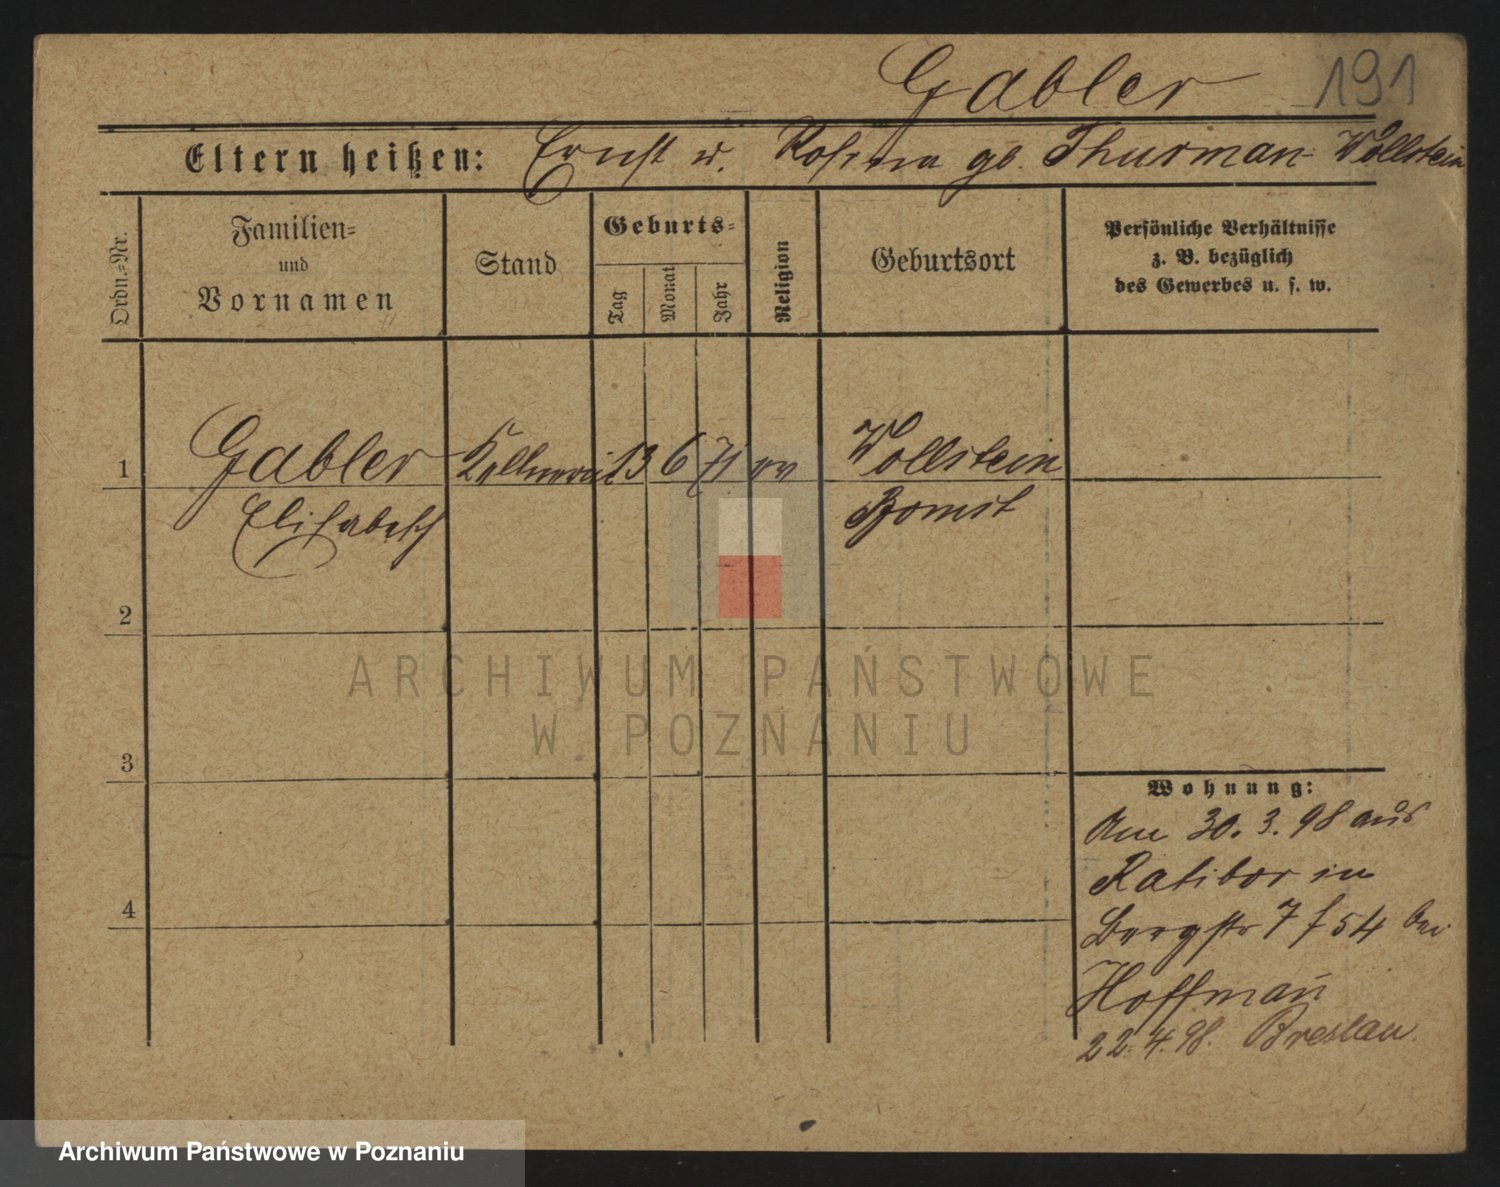 Gabler 191
Eltern heißen: Ernst u. Rosina gb. Thurman Wollstein
Ordn.-Nr.
Familien-
und
Vornamen
Stand
Geburts-
Tag
Monat
Jahr
Religion
Geburtsort
Persönliche Verhältnisse
z. B. bezüglich
des Gewerbes u. s. w.
1 Gabler Kellnerin 13 6 71 ev Wollstein
Elisabeth Bomst
2
3
4
ARCHIWUM PAŃSTWOWE
W POZNANIU
Wohnung:
Am 30. 3. 98 aus
Ratibor in
Bergstr 7 f 54 bei
Hoffman̄
22. 4. 98. Breslau
Archiwum Państwowe w Poznaniu